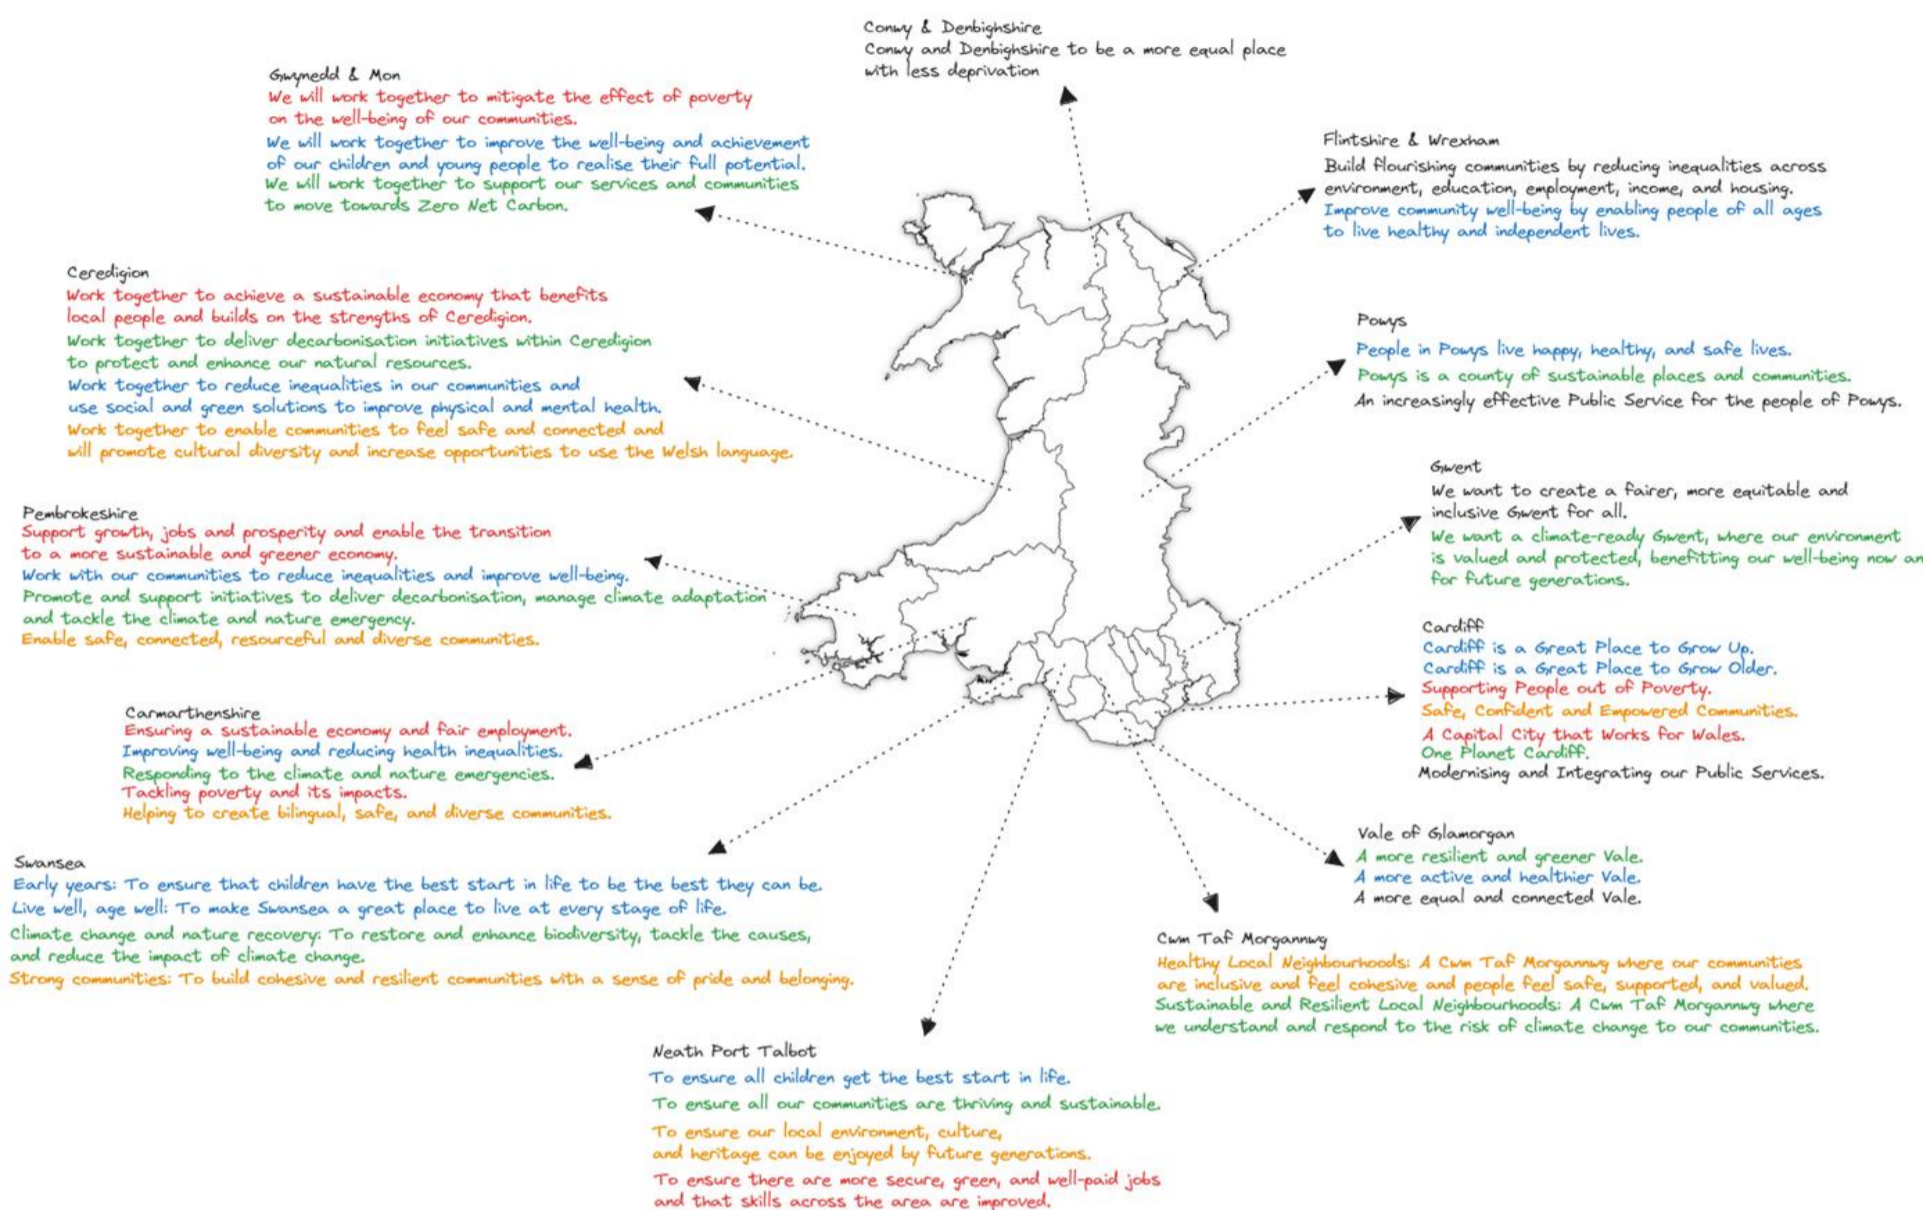 Conwy & Denbighshire
Conwy and Denbighshire to be a more equal place
with less deprivation
Gwynedd & Mon
We will work together to mitigate the effect of poverty
on the well-being of our communities.
We will work together to improve the well-being and achievement
of our children and young people to realise their full potential.
We will work together to support our services and communities
to move towards Zero Net Carbon.
Flintshire & Wrexham
Build flourishing communities by reducing inequalities across
environment, education, employment, income, and housing.
Improve community well-being by enabling people of all ages
to live healthy and independent lives.
Ceredigion
Work together to achieve a sustainable economy that benefits
local people and builds on the strengths of Ceredigion.
Work together to deliver decarbonisation initiatives within Ceredigion
to protect and enhance our natural resources.
Work together to reduce inequalities in our communities and
use social and green solutions to improve physical and mental health.
Work together to enable communities to feel safe and connected and
will promote cultural diversity and increase opportunities to use the Welsh language.
Powys
People in Powys live happy, healthy, and safe lives.
Powys is a county of sustainable places and communities.
An increasingly effective Public Service for the people of Powys.
Gwent
We want to create a fairer, more equitable and
inclusive Gwent for all.
We want a climate-ready Gwent, where our environment
is valued and protected, benefitting our well-being now an
for future generations.
Pembrokeshire
Support growth, jobs and prosperity and enable the transition
to a more sustainable and greener economy.
Work with our communities to reduce inequalities and improve well-being.
Promote and support initiatives to deliver decarbonisation, manage climate adaptation
and tackle the climate and nature emergency.
Enable safe, connected, resourceful and diverse communities.
Cardiff
Cardiff is a Great Place to Grow Up.
Cardiff is a Great Place to Grow Older.
Supporting People out of Poverty.
Safe, Confident and Empowered Communities.
A Capital City that Works for Wales.
One Planet Cardiff.
Modernising and Integrating our Public Services.
Carmarthenshire
Ensuring a sustainable economy and fair employment.
Improving well-being and reducing health inequalities.
Responding to the climate and nature emergencies.
Tackling poverty and its impacts.
Helping to create bilingual, safe, and diverse communities.
Vale of Glamorgan
A more resilient and greener Vale.
A more active and healthier Vale.
A more equal and connected Vale.
Swansea
Early years: To ensure that children have the best start in life to be the best they can be.
Live well, age well: To make Swansea a great place to live at every stage of life.
Climate change and nature recovery: To restore and enhance biodiversity, tackle the causes,
and reduce the impact of climate change.
Strong communities: To build cohesive and resilient communities with a sense of pride and belonging.
Cwm Taf Morgannwg
Healthy Local Neighbourhoods: A Cwm Taf Morgannwg where our communities
are inclusive and feel cohesive and people feel safe, supported, and valued.
Sustainable and Resilient Local Neighbourhoods: A Cwm Taf Morgannwg where
we understand and respond to the risk of climate change to our communities.
Neath Port Talbot
To ensure all children get the best start in life.
To ensure all our communities are thriving and sustainable.
To ensure our local environment, culture,
and heritage can be enjoyed by future generations.
To ensure there are more secure, green, and well-paid jobs
and that skills across the area are improved.